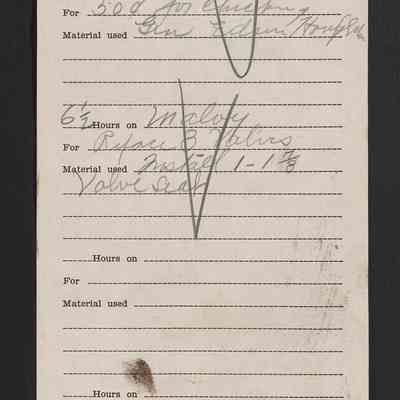 For 50¢ for
Material used Gen Edwin
6½ Hours on Maloy
For Reface 3 Valves
Material used Install 1-1⅞
Valve Seat
Hours on
For
Material used
Hours on